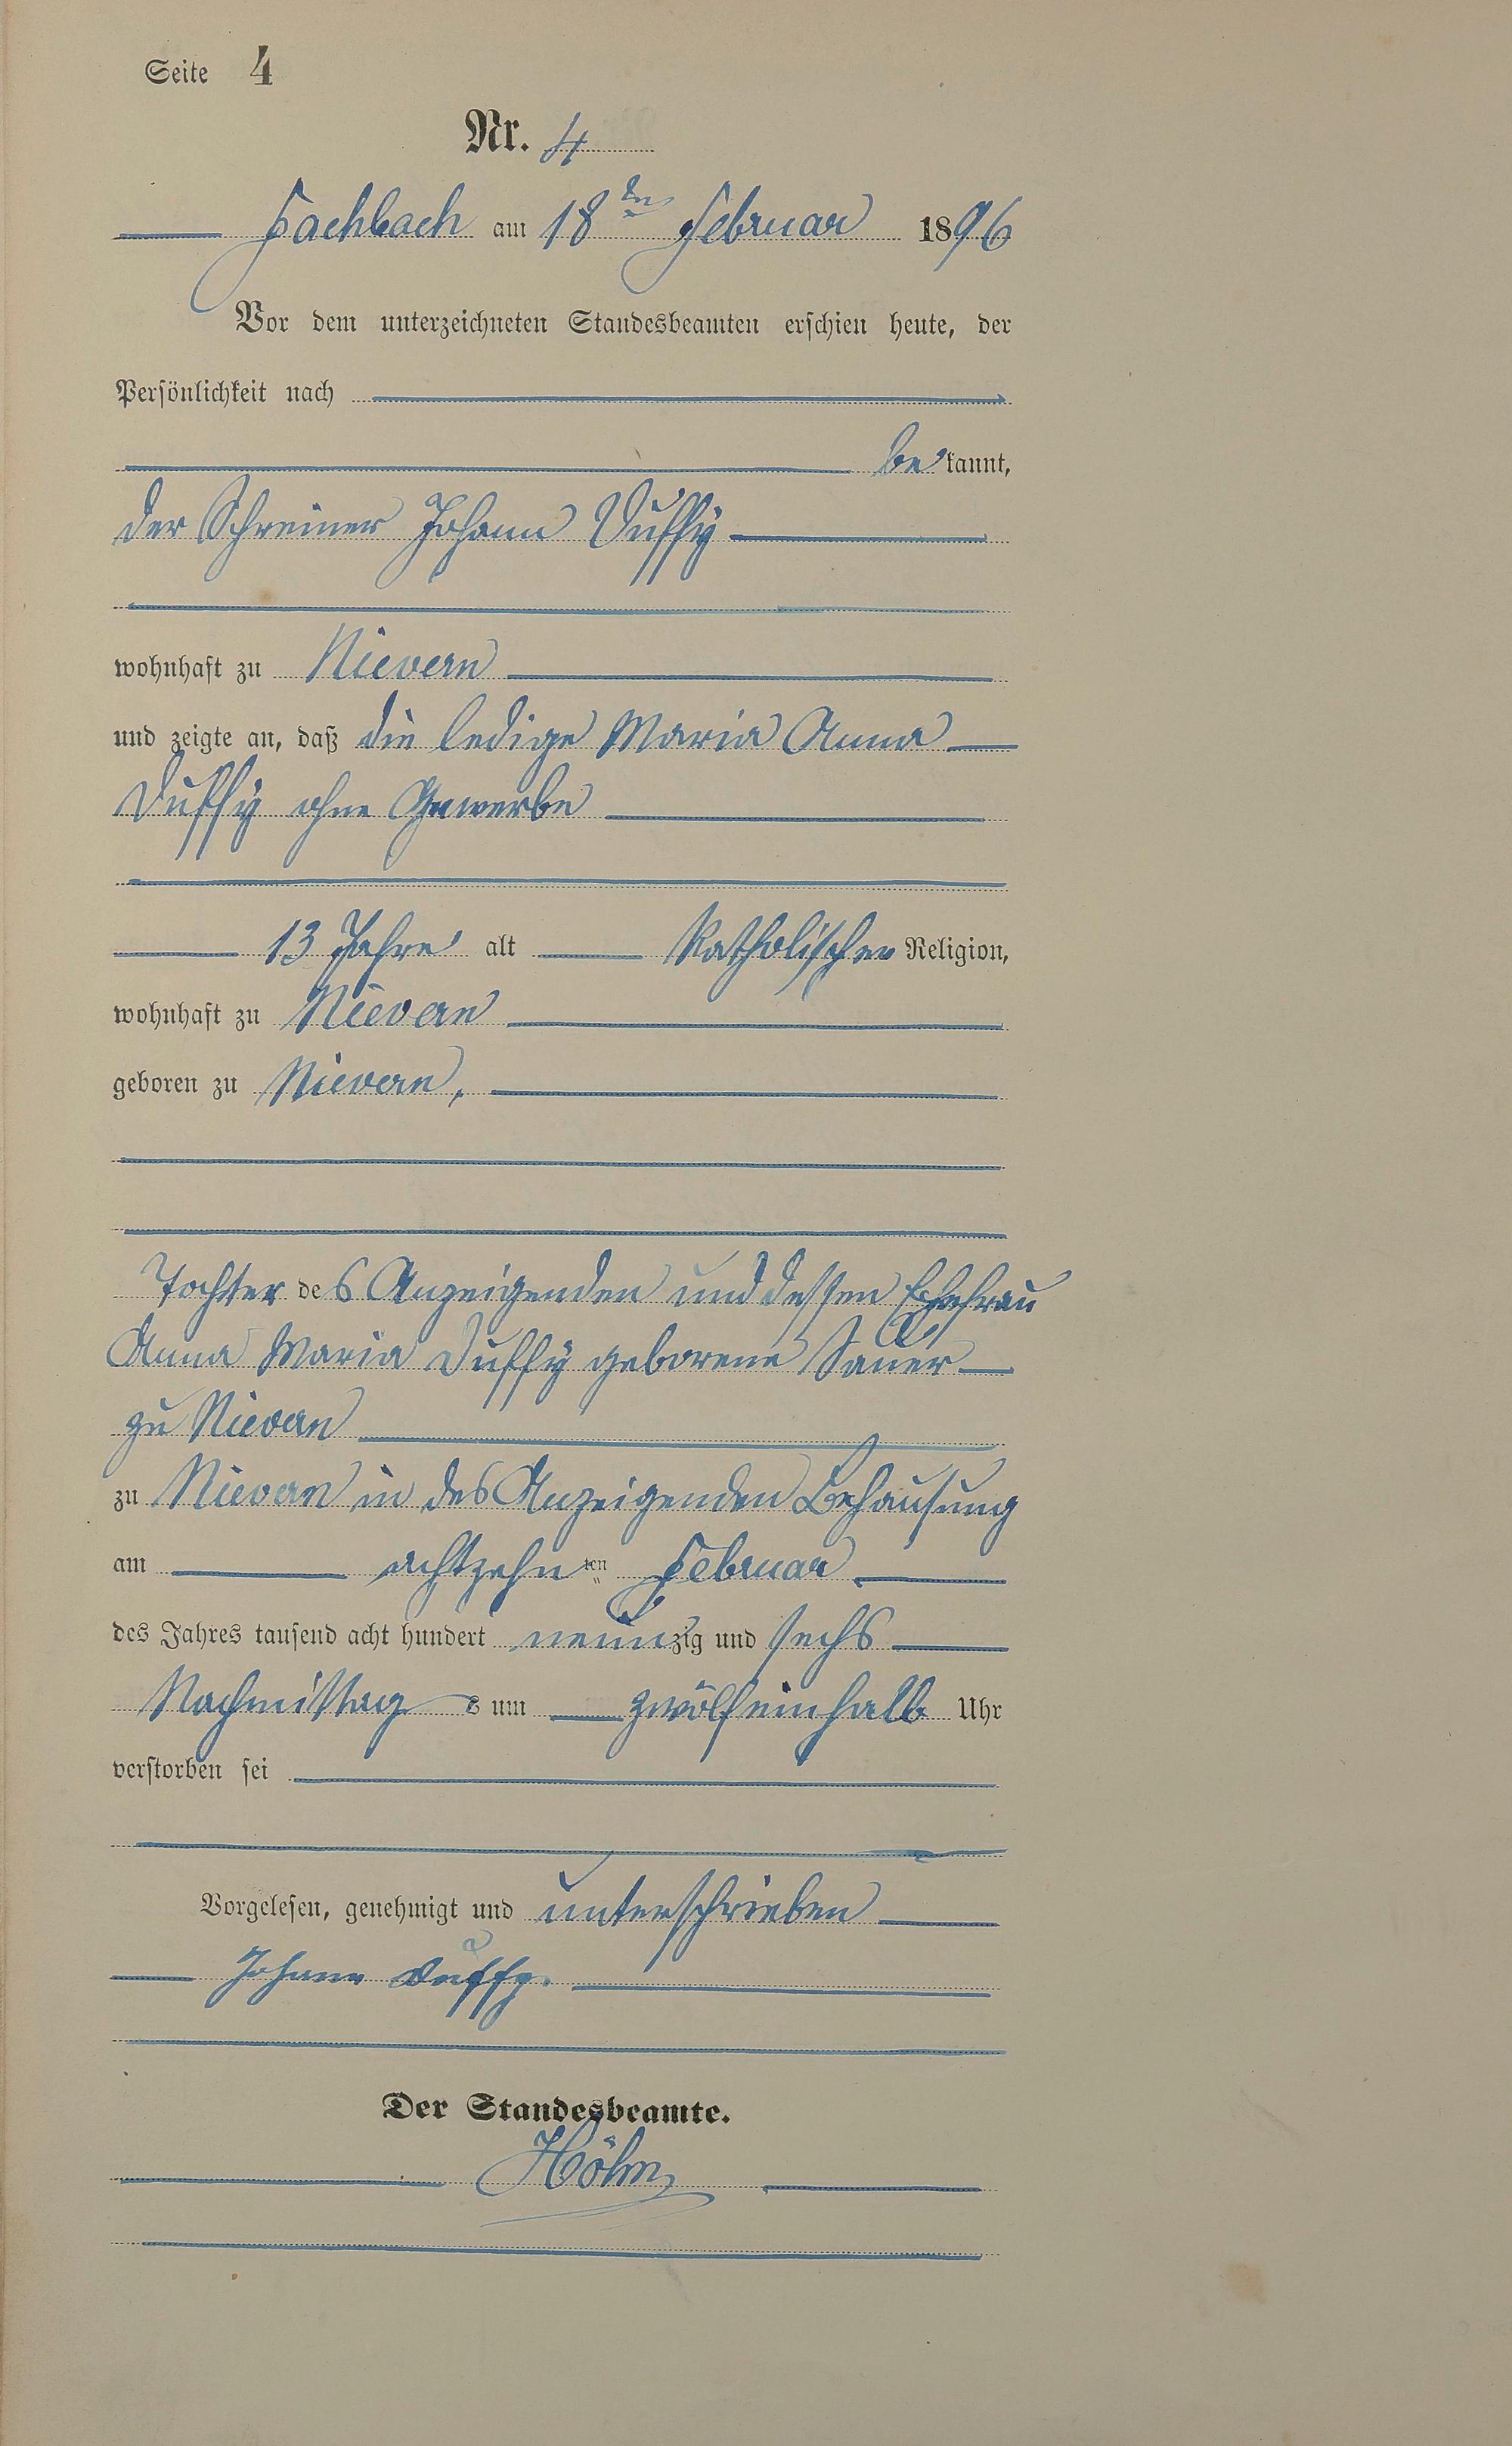 Seite 4
Nr. 4
Fachbach am 18ten Februar 1896
Vor dem unterzeichneten Standesbeamten erschien heute, der
Persönlichkeit nach
bekannt,
der Schreiner Johann Duffy
wohnhaft zu Nievern
und zeigte an, daß die ledige Maria Anna
Duffy ohne Gewerbe
13 Jahre alt Katholischer Religion,
wohnhaft zu Nievern
geboren zu Nievern,
Tochter des Anzeigenden und dessen Ehefrau
Anna Maria Duffy geborene Sauer
zu Nievern
zu Nievern in des Anzeigenden Behausung
am achtzehnten Februar
des Jahres tausend acht hundert neunzig und sechs
Nachmittags um zwölfeinhalb Uhr
verstorben sei
Vorgelesen, genehmigt und unterschrieben
Johann Duffy.
Der Standesbeamte.
Höhn